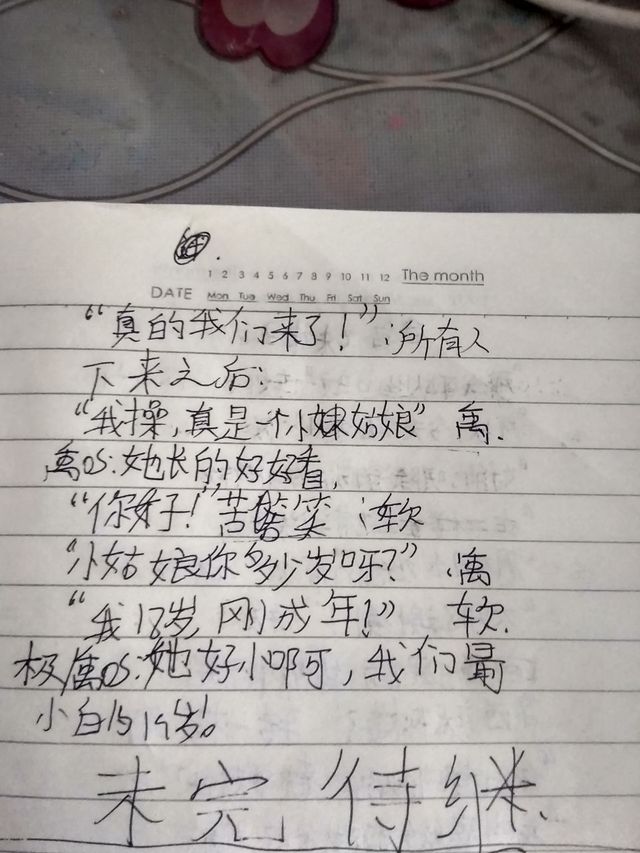 1 2 3 4 5 6 7 8 9 10 11 12 The month
DATE Mon Tue Wed Thu Fri Sat Sun
“真的我们来了！”；所有人
下来之后：
“我操，真是一个小妹姑娘” 离.
离OS：她长的好好看，
“你好！”苦笑；软
“小姑娘你多少岁呀？” ；离
“我18岁，刚成年！” 软.
极/离OS：她好小啊可，我们最
小的19岁！。
未完待继.